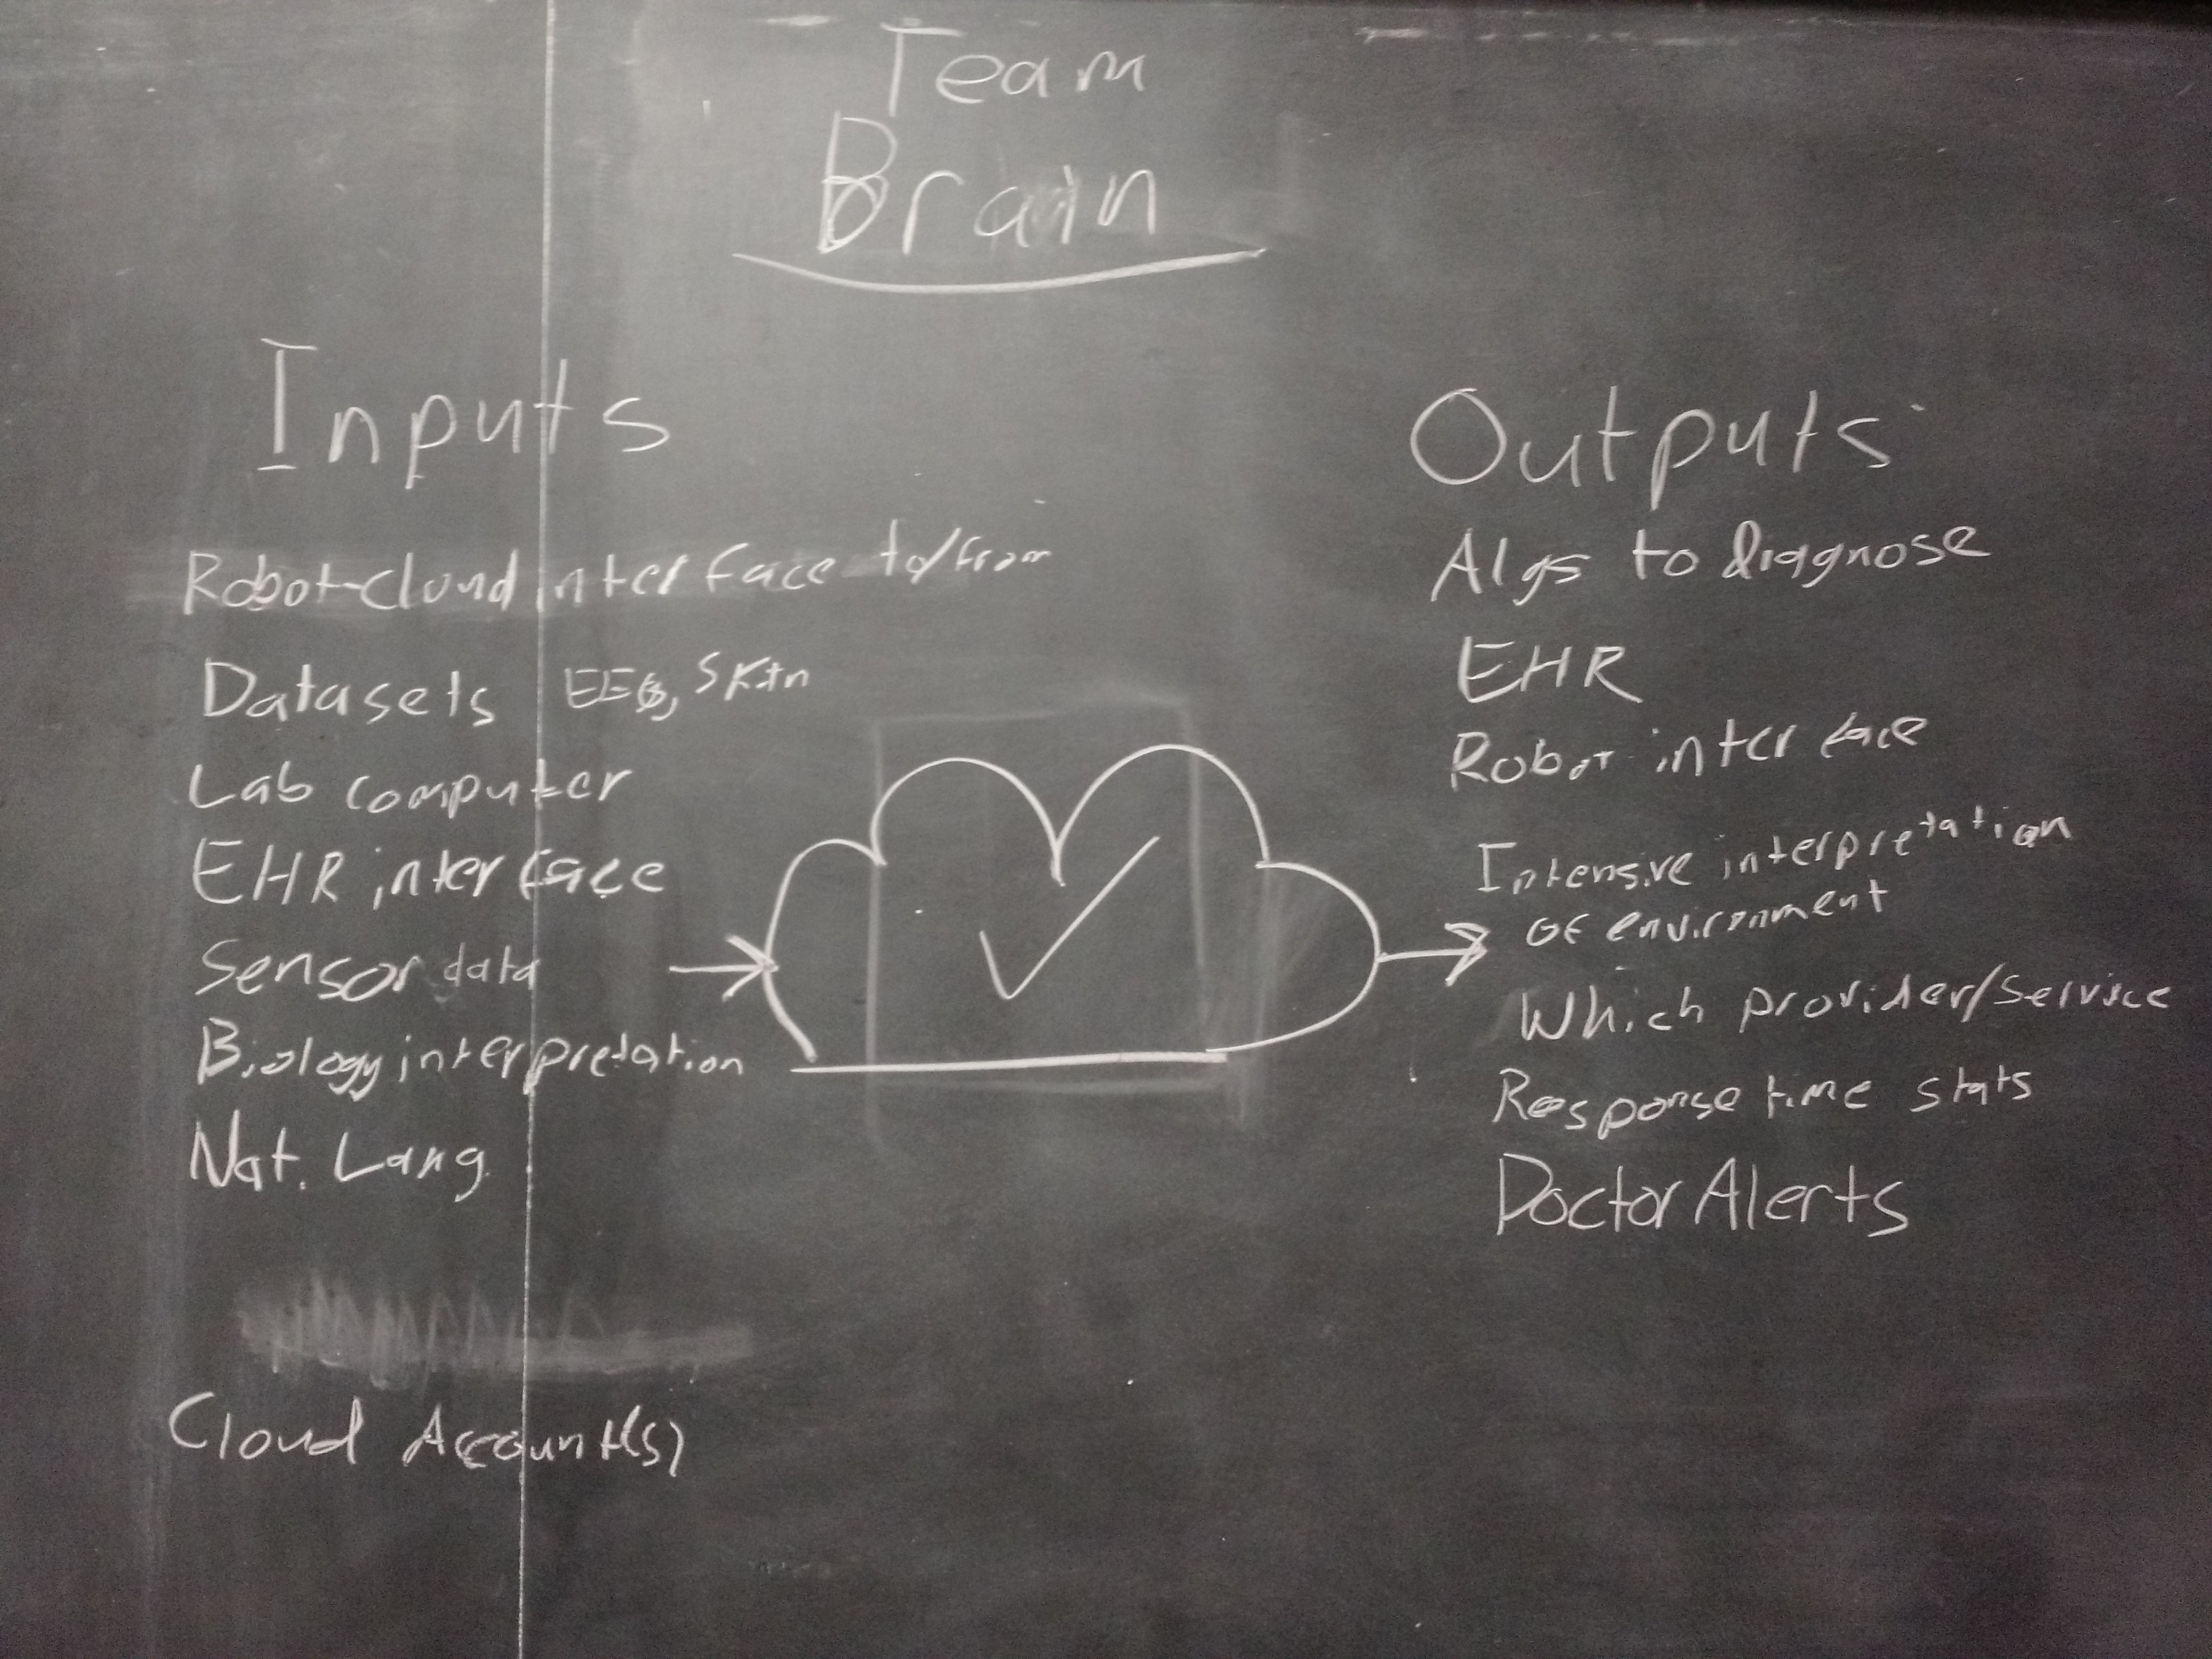 Team
Brain
Inputs
Robot-Cloud interface to/from
Datasets EEG, Skin
Lab computer
EHR interface
Sensor data
Biology interpretation
Nat. Lang.
Cloud Account(s)
Outputs
Algs to diagnose
EHR
Robot interface
Intensive interpretation
of environment
Which provider/service
Response time stats
Doctor Alerts